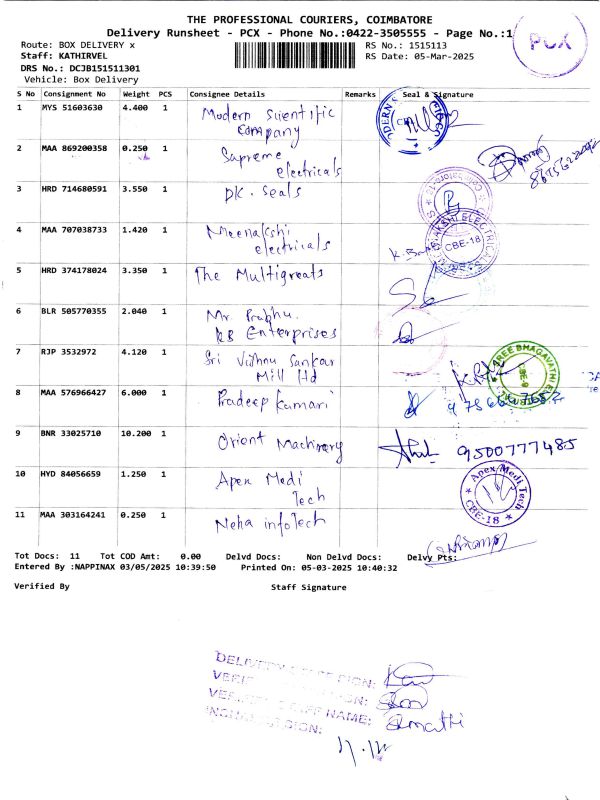 THE PROFESSIONAL COURIERS, COIMBATORE
Delivery Runsheet - PCX - Phone No.:0422-3505555 - Page No.:1
PCX
Route: BOX DELIVERY x
RS No.: 1515113
Staff: KATHIRVEL
RS Date: 05-Mar-2025
DRS No.: DCJB151511301
Vehicle: Box Delivery
S No Consignment No Weight PCS Consignee Details Remarks Seal & Signature
1 MYS 51603630 4.400 1 Modern Scientific
Company
2 MAA 869200358 0.250 1 Supreme
electricals
3 HRD 714680591 3.550 1 DK. Seals
4 MAA 707038733 1.420 1 Meenakshi
electricals
CBE-18
5 HRD 374178024 3.350 1 The Multigreats
6 BLR 505770355 2.040 1 Mr. Prabhu.
KB Enterprises
7 RJP 3532972 4.120 1 Sri Vishnu Sankar
Mill ltd
8 MAA 576966427 6.000 1 Pradeep Kumari
9 BNR 33025710 10.200 1 Orient Machinery
9500777485
10 HYD 84056659 1.250 1 Apex Medi
Tech
Apex Medi Tech
CBE-18
11 MAA 303164241 0.250 1 Neha infoTech
Tot Docs: 11 Tot COD Amt: 0.00 Delvd Docs: Non Delvd Docs: Delvy Pts:
Entered By :NAPPINAX 03/05/2025 10:39:50 Printed On: 05-03-2025 10:40:32
Verified By Staff Signature